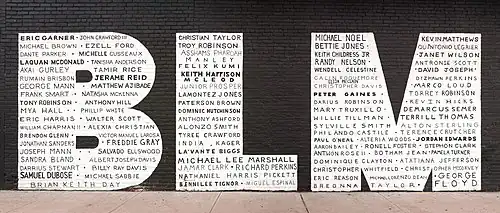 ERIC GARNER • JOHN CRAWFORD III
MICHAEL BROWN • EZELL FORD
DANTE PARKER • MICHELLE CUSSEAUX
LAQUAN MCDONALD • TANISHA ANDERSON
AKAI GURLEY • TAMIR RICE
RUMAIN BRISBON • JERAME REID
GEORGE MANN • MATTHEW AJIBADE
FRANK SMART • NATASHA MCKENNA
TONY ROBINSON • ANTHONY HILL
MYA HALL • PHILLIP WHITE
ERIC HARRIS • WALTER SCOTT
WILLIAM CHAPMAN II • ALEXIA CHRISTIAN
BRENDON GLENN • VICTOR MANUEL LAROSA
JONATHAN SANDERS • FREDDIE GRAY
JOSEPH MANN • SALVADO ELLSWOOD
SANDRA BLAND • ALBERT JOSEPH DAVIS
DARRIUS STEWART • BILLY RAY DAVIS
SAMUEL DUBOSE • MICHAEL SABBIE
BRIAN KEITH DAY
CHRISTIAN TAYLOR
TROY ROBINSON
ASSHAMS PHAROAH
MANLEY
FELIX KUMI
KEITH HARRISON
MCLEOD
JUNIOR PROSPER
LAMONTEZ JONES
PATERSON BROWN
DOMINIC HUTCHINSON
ANTHONY ASHFORD
ALONZO SMITH
TYREE CRAWFORD
INDIA KAGER
LA'VANTE BIGGS
MICHAEL LEE MARSHALL
JAMAR CLARK • RICHARD PERKINS
NATHANIEL HARRIS PICKETT
BENNI LEE TIGNOR • MIGUEL ESPINAL
MICHAEL NOEL
BETTIE JONES
KEITH CHILDRESS JR
RANDY NELSON
WENDELL CELESTINE
CALIN ROQUEMORE
CHRISTOPHER DAVIS
PETER GAINES
DARIUS ROBINSON
MARY TRUXILLO
WILLIE TILLMAN
SYVILLE SMITH
PHILANDO CASTILE
PAUL O'NEAL
AARON BAILEY • RONELL FOSTER • STEPHON CLARK
ANTWON ROSE II • BOTHAM JEAN • PAMELA TURNER
DOMINIQUE CLAYTON • TATIANA JEFFERSON
CHRISTOPHER WHITFIELD • CHRISTOPHER MCCORVEY
ERIC REASON
BREONNA TAYLOR
KEVIN MATTHEWS
QUINTONIO LEGRIER
JANET WILSON
ANTRONIE SCOTT
DAVID JOSEPH
DYZHAWN PERKINS
MARCO LOUD
TORREY ROBINSON
KEVIN HICKS
DEMARCUS SEMER
TERRILL THOMAS
ALTON STERLING
TERENCE CRUTCHER
ALTERIA WOODS • JORDAN EDWARDS
MICHAEL LORENZO DEAN
GEORGE
FLOYD